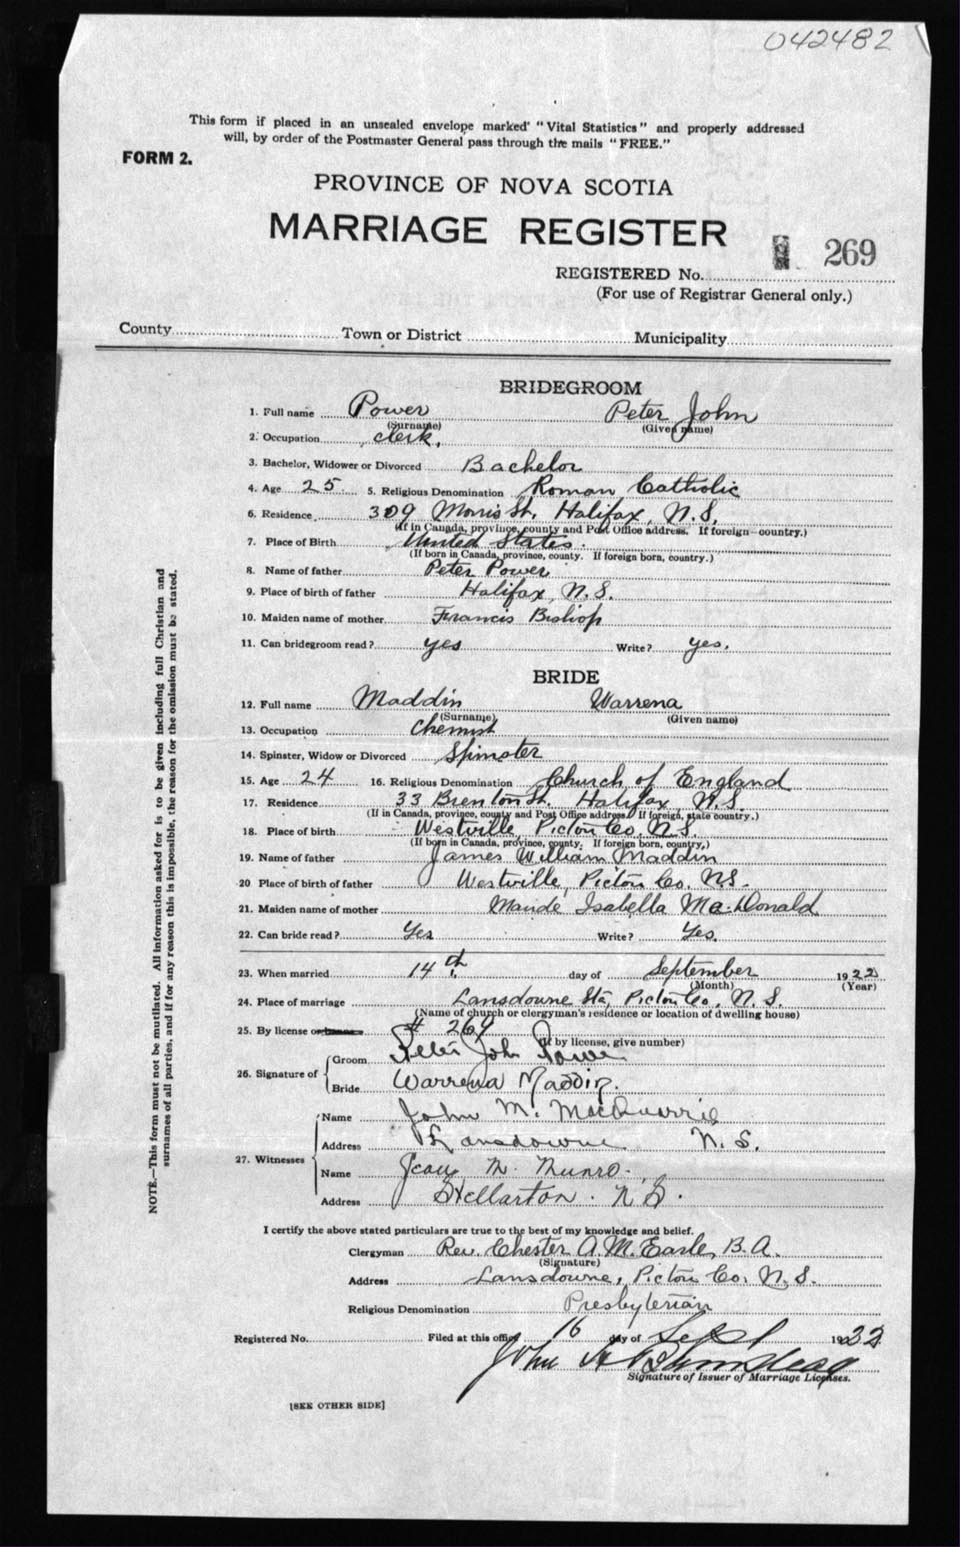 042482
This form if placed in an unsealed envelope marked "Vital Statistics" and properly addressed
will, by order of the Postmaster General pass through the mails "FREE."
FORM 2.
PROVINCE OF NOVA SCOTIA
MARRIAGE REGISTER
269
REGISTERED No.
(For use of Registrar General only.)
County Town or District Municipality
BRIDEGROOM
1. Full name Power Peter John
(Surname) (Given name)
2. Occupation clerk.
3. Bachelor, Widower or Divorced Bachelor
4. Age 25 5. Religious Denomination Roman Catholic
6. Residence 309 Morris St. Halifax, N.S.
(If in Canada, province, county and Post Office address. If foreign country.)
7. Place of Birth United States.
(If born in Canada, province, county. If foreign born, country.)
8. Name of father Peter Power
9. Place of birth of father Halifax, N.S.
10. Maiden name of mother Francis Bishop
11. Can bridegroom read? yes Write? yes.
BRIDE
12. Full name Maddin Warrena
(Surname) (Given name)
13. Occupation Chemist
14. Spinster, Widow or Divorced Spinster
15. Age 24 16. Religious Denomination Church of England
17. Residence 33 Brenton St. Halifax, N.S.
(If in Canada, province, county and Post Office address. If foreign, state country.)
18. Place of birth Westville, Pictou Co. N.S.
(If born in Canada, province, county. If foreign born, country,)
19. Name of father James William Maddin
20 Place of birth of father Westville, Pictou Co. N.S.
21. Maiden name of mother Maude Isabella MacDonald
22. Can bride read? Yes Write? Yes.
23. When married 14th day of September 1922
(Month) (Year)
24. Place of marriage Lansdowne Sta, Pictou Co, N.S.
(Name of church or clergyman's residence or location of dwelling house)
25. By license or # 269
(If by license, give number)
26. Signature of Groom Peter John Power
Bride Warrena Maddin.
27. Witnesses Name John M. MacQuarrie
Address Lansdowne N.S.
Name Jean M. Munro.
Address Stellarton. N.S.
I certify the above stated particulars are true to the best of my knowledge and belief.
Clergyman Rev. Chester A. M. Earle, B.A.
(Signature)
Address Lansdowne, Pictou Co. N.S.
Religious Denomination Presbyterian
Registered No. Filed at this office 16 day of Sept 1922
John
Signature of Issuer of Marriage Licenses.
[SEE OTHER SIDE]
NOTE.—This form must not be mutilated. All information asked for is to be given including full Christian and
surnames of all parties, and if for any reason this is impossible, the reason for the omission must be stated.